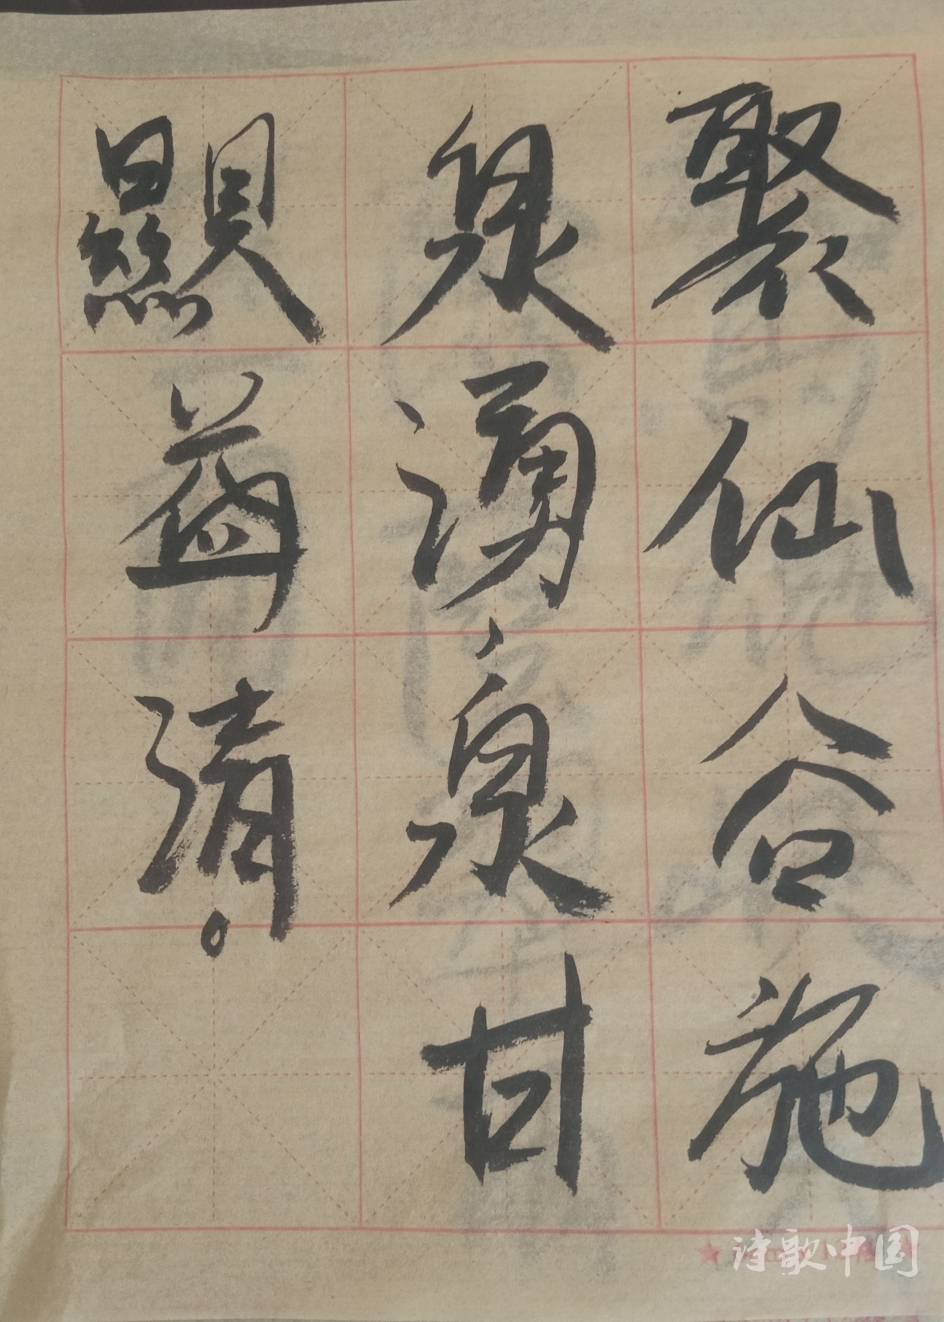 聚仙谷施
泉湧泉甘
顯益清。
诗歌中国